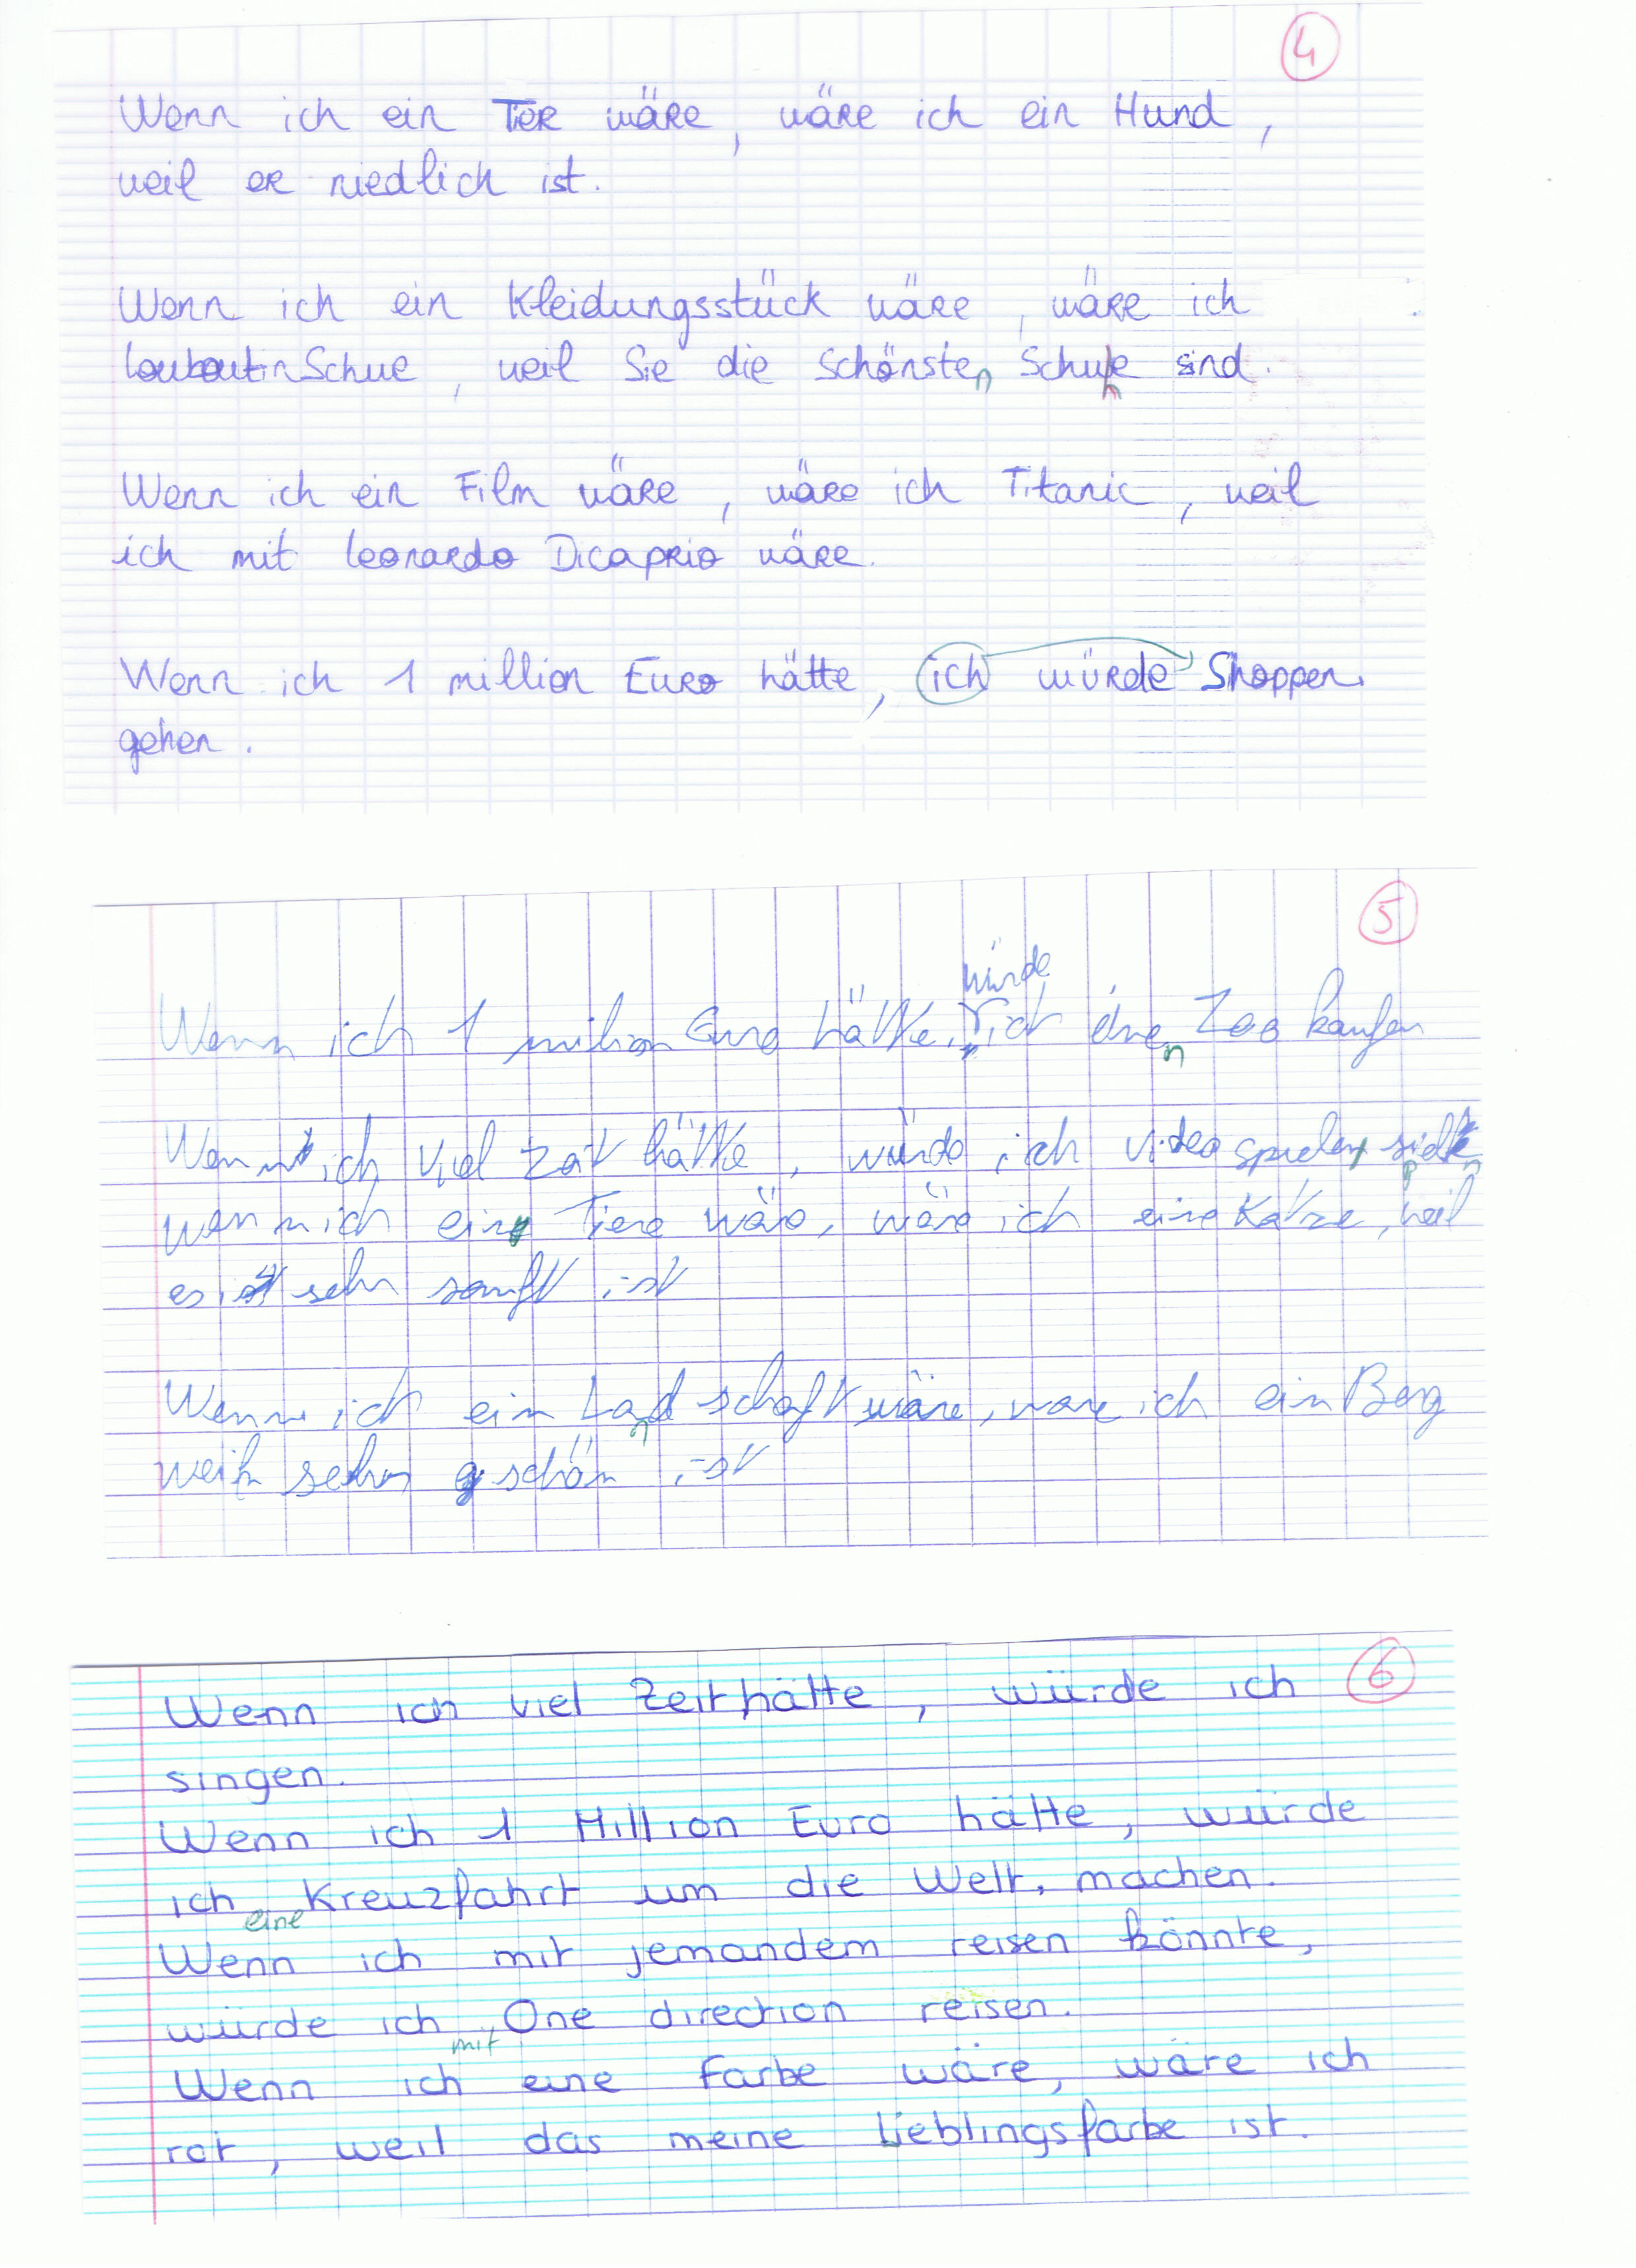 4
Wenn ich ein Tier wäre, wäre ich ein Hund,
weil er niedlich ist.
Wenn ich ein Kleidungsstück wäre, wäre ich
louboutin Schue, weil Sie die Schönsten Schuhe sind.
Wenn ich ein Film wäre, wäre ich Titanic, weil
ich mit leonardo Dicaprio wäre.
Wenn ich 1 million Euro hätte, ich würde Shoppen
gehen.
5
würde
Wenn ich 1 milion Euro hätte, ich einen Zoo kaufen
Wenn ich viel zeit hätte, würde ich video spielen
wenn ich ein Tiere wäre, wäre ich eine Katze, weil
es sehr sanft ist
Wenn ich ein Landschaft wäre, wäre ich ein Berg
weil sehr schön ist
6
Wenn ich viel Zeit hätte, würde ich
singen.
Wenn ich 1 Million Euro hätte, würde
ich eine Kreuzfahrt um die Welt, machen.
Wenn ich mit jemandem reisen könnte,
würde ich mit One direction reisen.
Wenn ich eine Farbe wäre, wäre ich
rot, weil das meine Lieblingsfarbe ist.